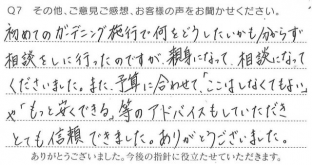 Q7 その他、ご意見ご感想、お客様の声をお聞かせください。
初めてのガーデニング施行で何をどうしたいかも分からず
相談をしに行ったのですが、親身になって、相談になって
くださいました。また、予算に合わせて「ここはしなくてもよい」
や「もっと安くできる」等のアドバイスもしていただき
とても信頼できました。ありがとうございました。
ありがとうございました。今後の指針に役立たせていただきます。